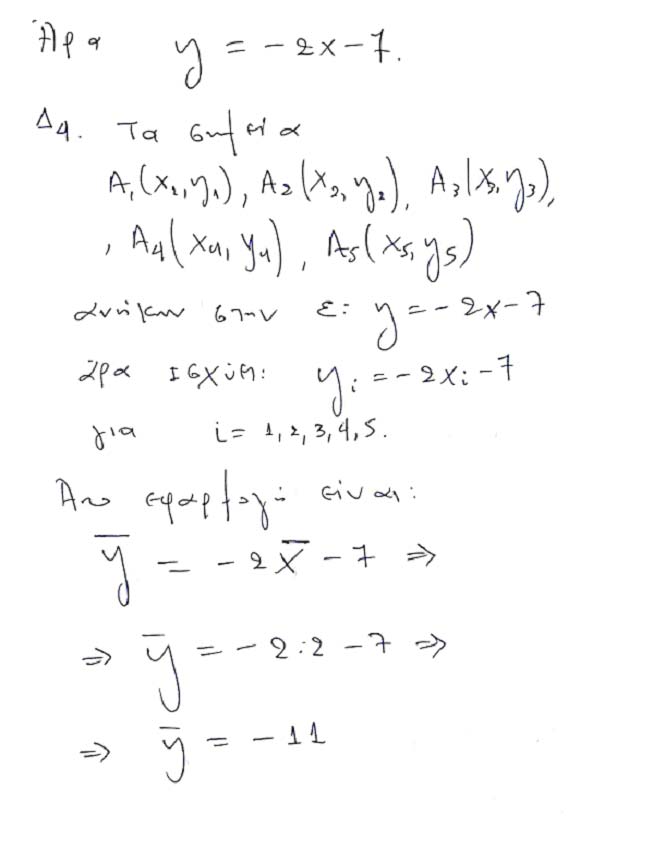 Άρα y = -2x-7.
Δ4. Τα σημεία
A₁(x₁,y₁), A₂(x₂,y₂), A₃(x₃,y₃),
, A₄(x₄,y₄), A₅(x₅,y₅)
ανήκουν στην ε: y = -2x-7
άρα ισχύει: yᵢ = -2xᵢ-7
για i = 1,2,3,4,5.
Από εφαρμογή είναι:
y̅ = -2x̅ -7 ⇒
⇒ y̅ = -2·2 -7 ⇒
⇒ y̅ = -11